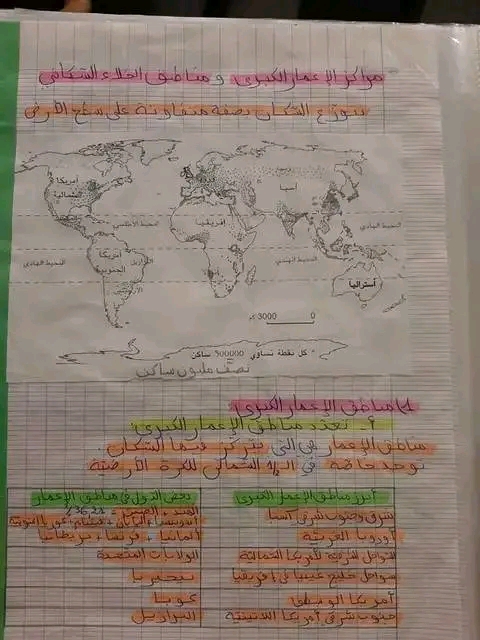 مراكز الإعمار الكبرى و مناطق الخلاء السكاني
يتوزع السكان بصفة متفاوتة على سطح الأرض
أمريكا
الشمالية
آسيا
إفريقيا
المحيط الأطلسي
المحيط الهادي
المحيط الهادي
المحيط الهندي
أمريكا
الجنوبية
البرازيل
الأرجنتين
أستراليا
0 3000 كم
• كل نقطة تساوي 500000 ساكن
نصف مليون ساكن
1) مناطق الإعمار الكبرى
أ- تعدد مناطق الإعمار الكبرى:
مناطق الإعمار هي التي يتركز فيها السكان.
توجد خاصة في الـ 1/2 الشمالي للكرة الأرضية
أبرز مناطق الإعمار الكبرى | بعض الدول في مناطق الإعمار
شرق وجنوب شرقي آسيا | الهند + الصين = 36%
أندونيسيا + اليابان + فيتنام + كوريا الجنوبية
أوروبا الغربية | ألمانيا + فرنسا + بريطانيا
السواحل الشرقية لأمريكا الشمالية | الولايات المتحدة
سواحل خليج غينيا في إفريقيا | نيجيريا
أمريكا الوسطى | كوبا
جنوب شرقي أمريكا اللاتينية | البرازيل